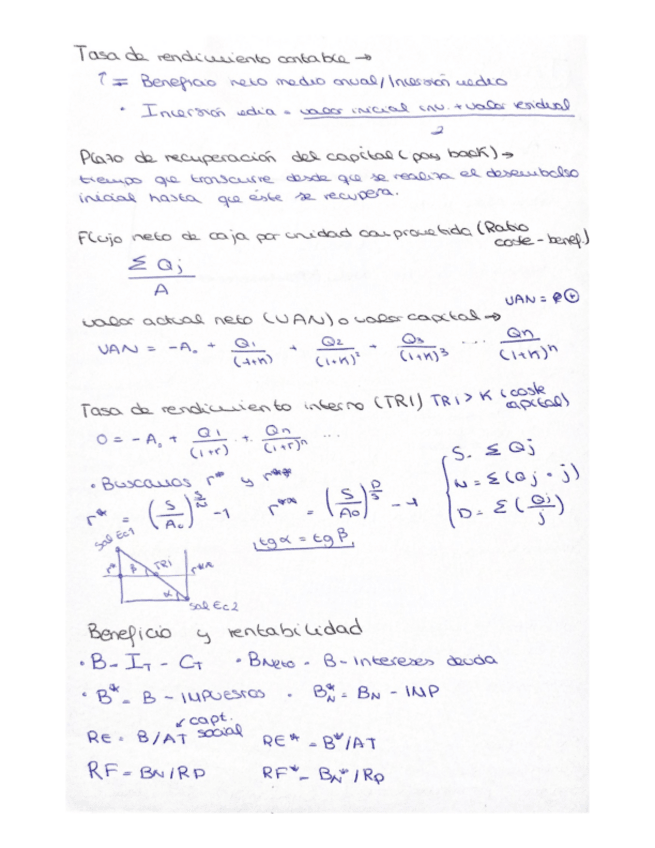 Tasa de rendimiento contable →
r = Beneficio neto medio anual/Inversión media
· Inversión media = valor inicial inv. + valor residual
2
Plazo de recuperación del capital (pay back) →
tiempo que transcurre desde que se realiza el desembolso
inicial hasta que éste se recupera.
Flujo neto de caja por unidad comprometida (Ratio
coste - benef.)
Σ Qj
A
VAN = ⊕
valor actual neto (VAN) o valor capital →
VAN = -A₀ + Q1/(1+K) + Q2/(1+K)² + Q3/(1+K)³ ... Qn/(1+K)ⁿ
Tasa de rendimiento interno (TRI) TRI > K (coste
capital)
0 = -A₀ + Q1/(1+r) + Qn/(1+r)ⁿ ...
· Buscamos r* y r**
r* = (S/A₀)^(S/N) -1 r** = (S/A₀)^(D/S) -1
S = Σ Qj
N = Σ(Qj · j)
D = Σ(Qj/j)
tg α = tg β
Sal Ec1
r* β TRI r**
α
Sal Ec2
Beneficio y rentabilidad
· B = IT - CT · BNeto = B - Intereses deuda
· B* = B - IMPUESTOS · B*N = BN - IMP
capt.
social
RE = B/AT RE* = B*/AT
RF = BN/RP RF* = BN*/RP